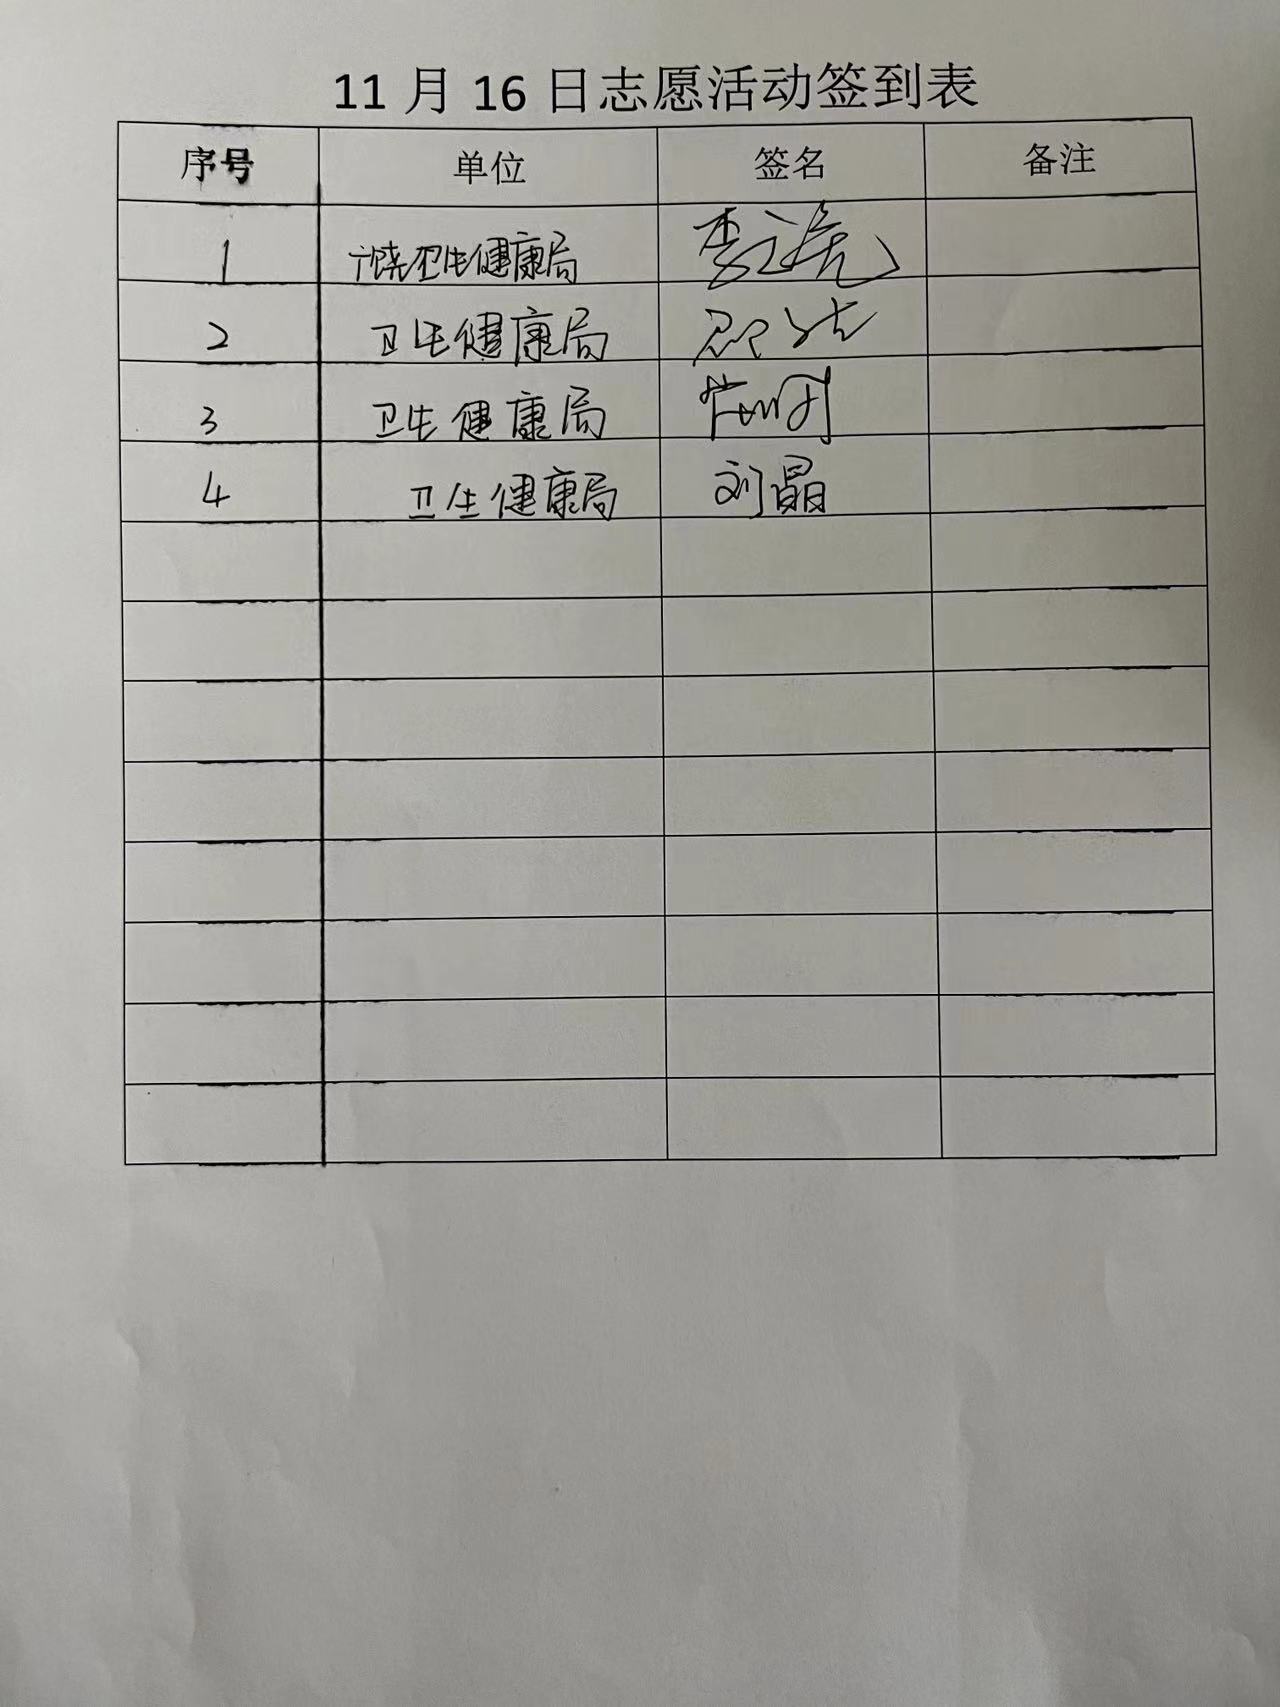 11月16日志愿活动签到表
序号 单位 签名 备注
1 广饶卫生健康局 李
2 卫生健康局
3 卫生健康局
4 卫生健康局 刘晶